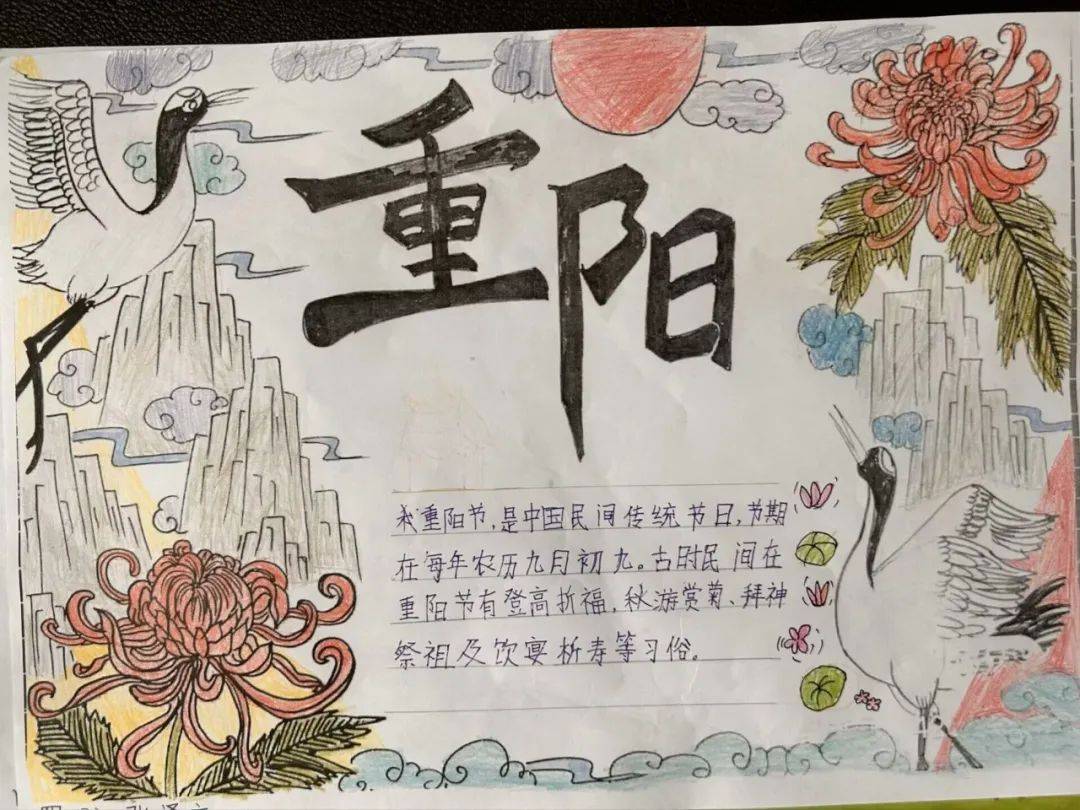 重阳
重阳节,是中国民间传统节日,节期
在每年农历九月初九。古时民间在
重阳节有登高折福,秋游赏菊、拜神
祭祖及饮宴析寿等习俗。